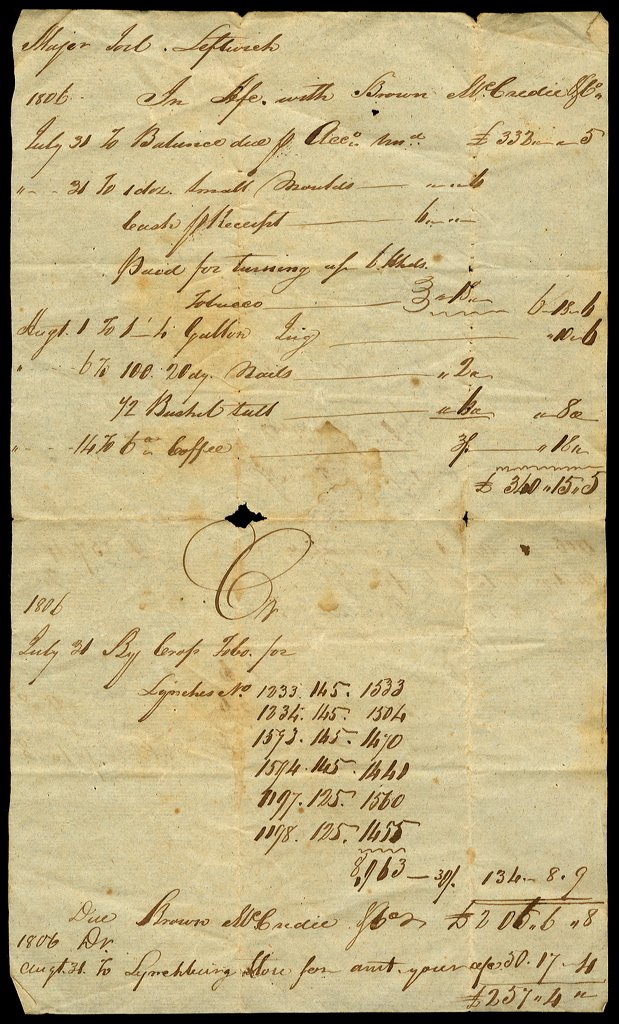 Major Joel Leftwich
1806 In A/c. with Brown McCredie & Co.
July 31 To Balance due p Acco. £ 332 " " 5
" - - 31 To 1 doz. Small Moulds " " 6
Cash p Receipt 6 " "
Paid for turning up 6 Hhds.
Tobacco 3 " 18 " 6 " 18 " 6
Augt. 1 To 1 - 4 Gallon Jug " 10 " 6
" 6 To 100. 20dy. Nails " 2 "
1/2 Bushel Salt " 6 " " 8 "
" - - 14 To 6 lb Coffee 3/. " 18 "
£ 340 " 15 " 5
Cr
1806
July 31 By Crop Tobo. for
Lynches No. 1233. 145. 1533
1234. 145. 1504
1593. 145. 1470
1594. 145. 1440
1197. 125. 1560
1198. 125. 1455
8,963 — 30/. 134 - 8 . 9
Due Brown McCredie & Co £ 206 " 6 " 8
1806 Dr.
Augt. 31. To Lynchburg Store for amt. your a/c 50 . 17 - 4
£ 257 " 4 "